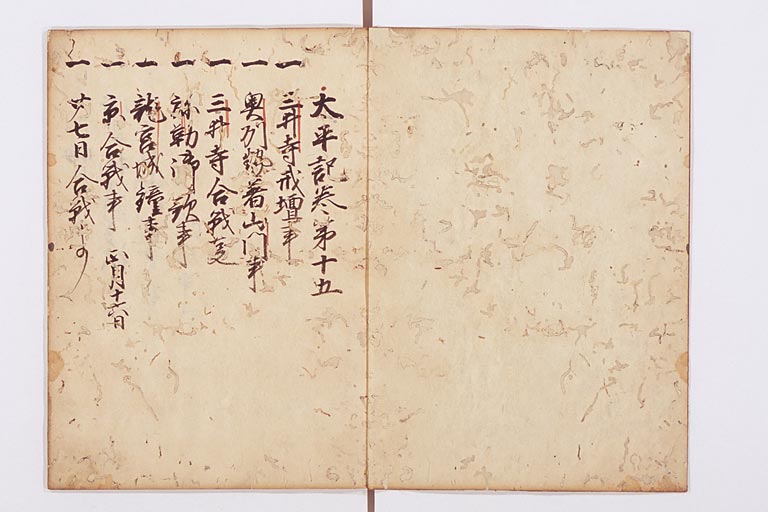 太平記巻第十五
一 三井寺戒壇事
一 奥州勢著山門事
一 三井寺合戦事
一 弥勒御歌事
一 龍宮城鐘事
一 京合戦事 正月十六日
一 廿七日合戦事